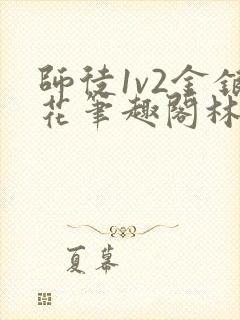 師徒1v2金銀
花筆趣閣林
夏幕